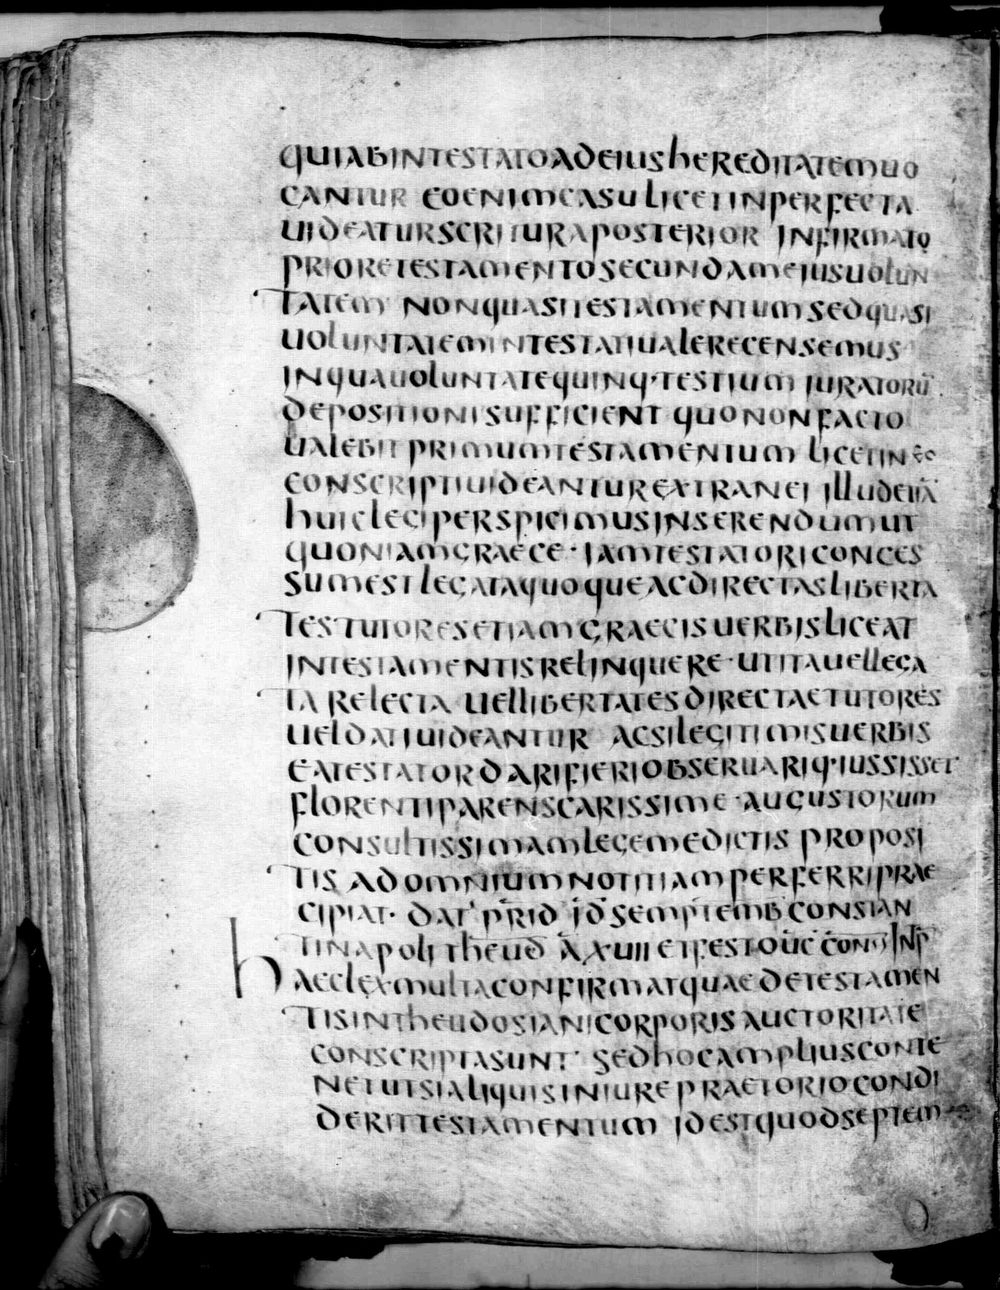 QUIABINTESTATOADEIUSHEREDITATEMUO
CANTUR EOENIMCASULICETINPERFECTA
UIDEATURSCRITURAPOSTERIOR INFIRMATO
PRIORETESTAMENTOSECUNDAMEIUSUOLUN
TATEM NONQUASITESTAMENTUMSEDQUASI
UOLUNTATEMINTESTATIUALERECENSEMUS
INQUAUOLUNTATEQUINQ·TESTIUM IURATORŪ
DEPOSITIONISUFFICIENT QUONONFACTO
UALEBIT PRIMUMTESTAMENTUM LICETIN
CONSCRIPTIUIDEANTUREXTRANEI ILLUDETIĀ
HUICLEGIPERSPICIMUSINSERENDUMUT
QUONIAMGRAECE·IAMTESTATORICONCES
SUMESTLEGATAQUOQUEACDIRECTASLIBERTA
TESTUTORESETIAMGRAECISUERBISLICEAT
INTESTAMENTISRELINQUERE·UTITAUELLEGA
TA RELECTA UELLIBERTATESDIRECTAETUTORES
UELDATIUIDEANTUR ACSILEGITIMISUERBIS
EATESTATORDARIFIERIOBSERUARIQ·IUSSISSET
FLORENTIPARENSCARISSIME·AUGUSTORUM
CONSULTISSIMAMLEGEMEDICTIS PROPOSI
TIS ADOMNIUMNOTITIAMPERFERRIPRAE
CIPIAT· DAT' PRID ID SEMPTEMB CONSTAN
TINAPOLI THEUD Ā XUIII ETFESTOŪC CONS INP
HAECLEXMULTACONFIRMATQUAEDETESTAMEN
TISINTHEUDOSIANICORPORISAUCTORITATE
CONSCRIPTASUNT· SEDHOCAMPLIUSCONTE
NETUTSIALIQUISINIUREPRAETORIOCONDI
DERITTESTAMENTUM IDESTQUODSEPTEM